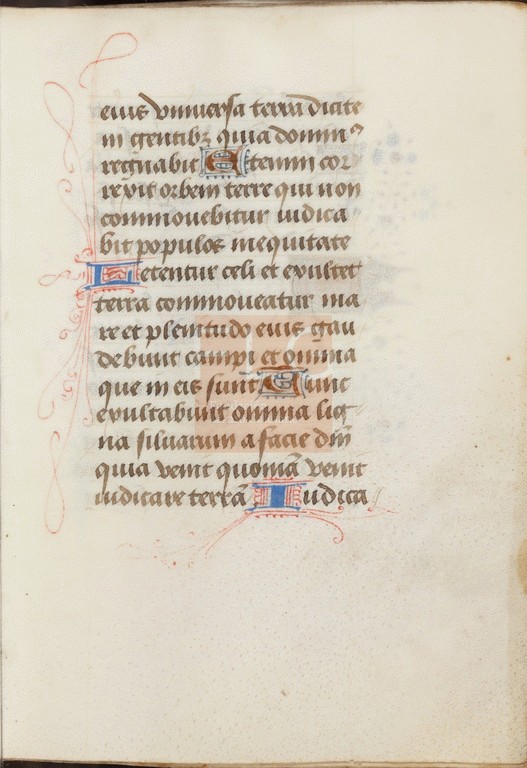 eius vniuersa terra dicite
in gentibꝫ quia dominꝰ
regnabit Etenim cor
rexit orbem terre qui non
commouebitur iudica
bit populos in equitate
Letentur celi et exultet
terra commoueatur ma
re et plenitudo eius gau
debunt campi et omnia
que in eis sunt Tunc
exultabunt omnia lig
na siluarum a facie dn̄i
quia venit quoniā venit
iudicare terrā Iudica